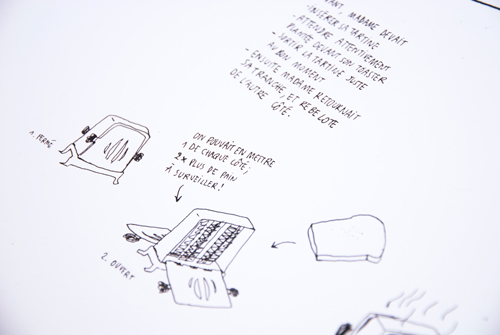 AVANT, MADAME DEVAIT
- INSÉRER SA TARTINE
- ATTENDRE ATTENTIVEMENT
PLANTÉE DEVANT SON TOASTER
- SORTIR LA TARTINE JUSTE
AU BON MOMENT
- ENSUITE MADAME RETOURNAIT
SA TRANCHE, ET REBELOTE
DE L'AUTRE CÔTÉ.
1. FERMÉ
ON POUVAIT EN METTRE
1 DE CHAQUE CÔTÉ;
2x PLUS DE PAIN
À SURVEILLER!
2. OUVERT